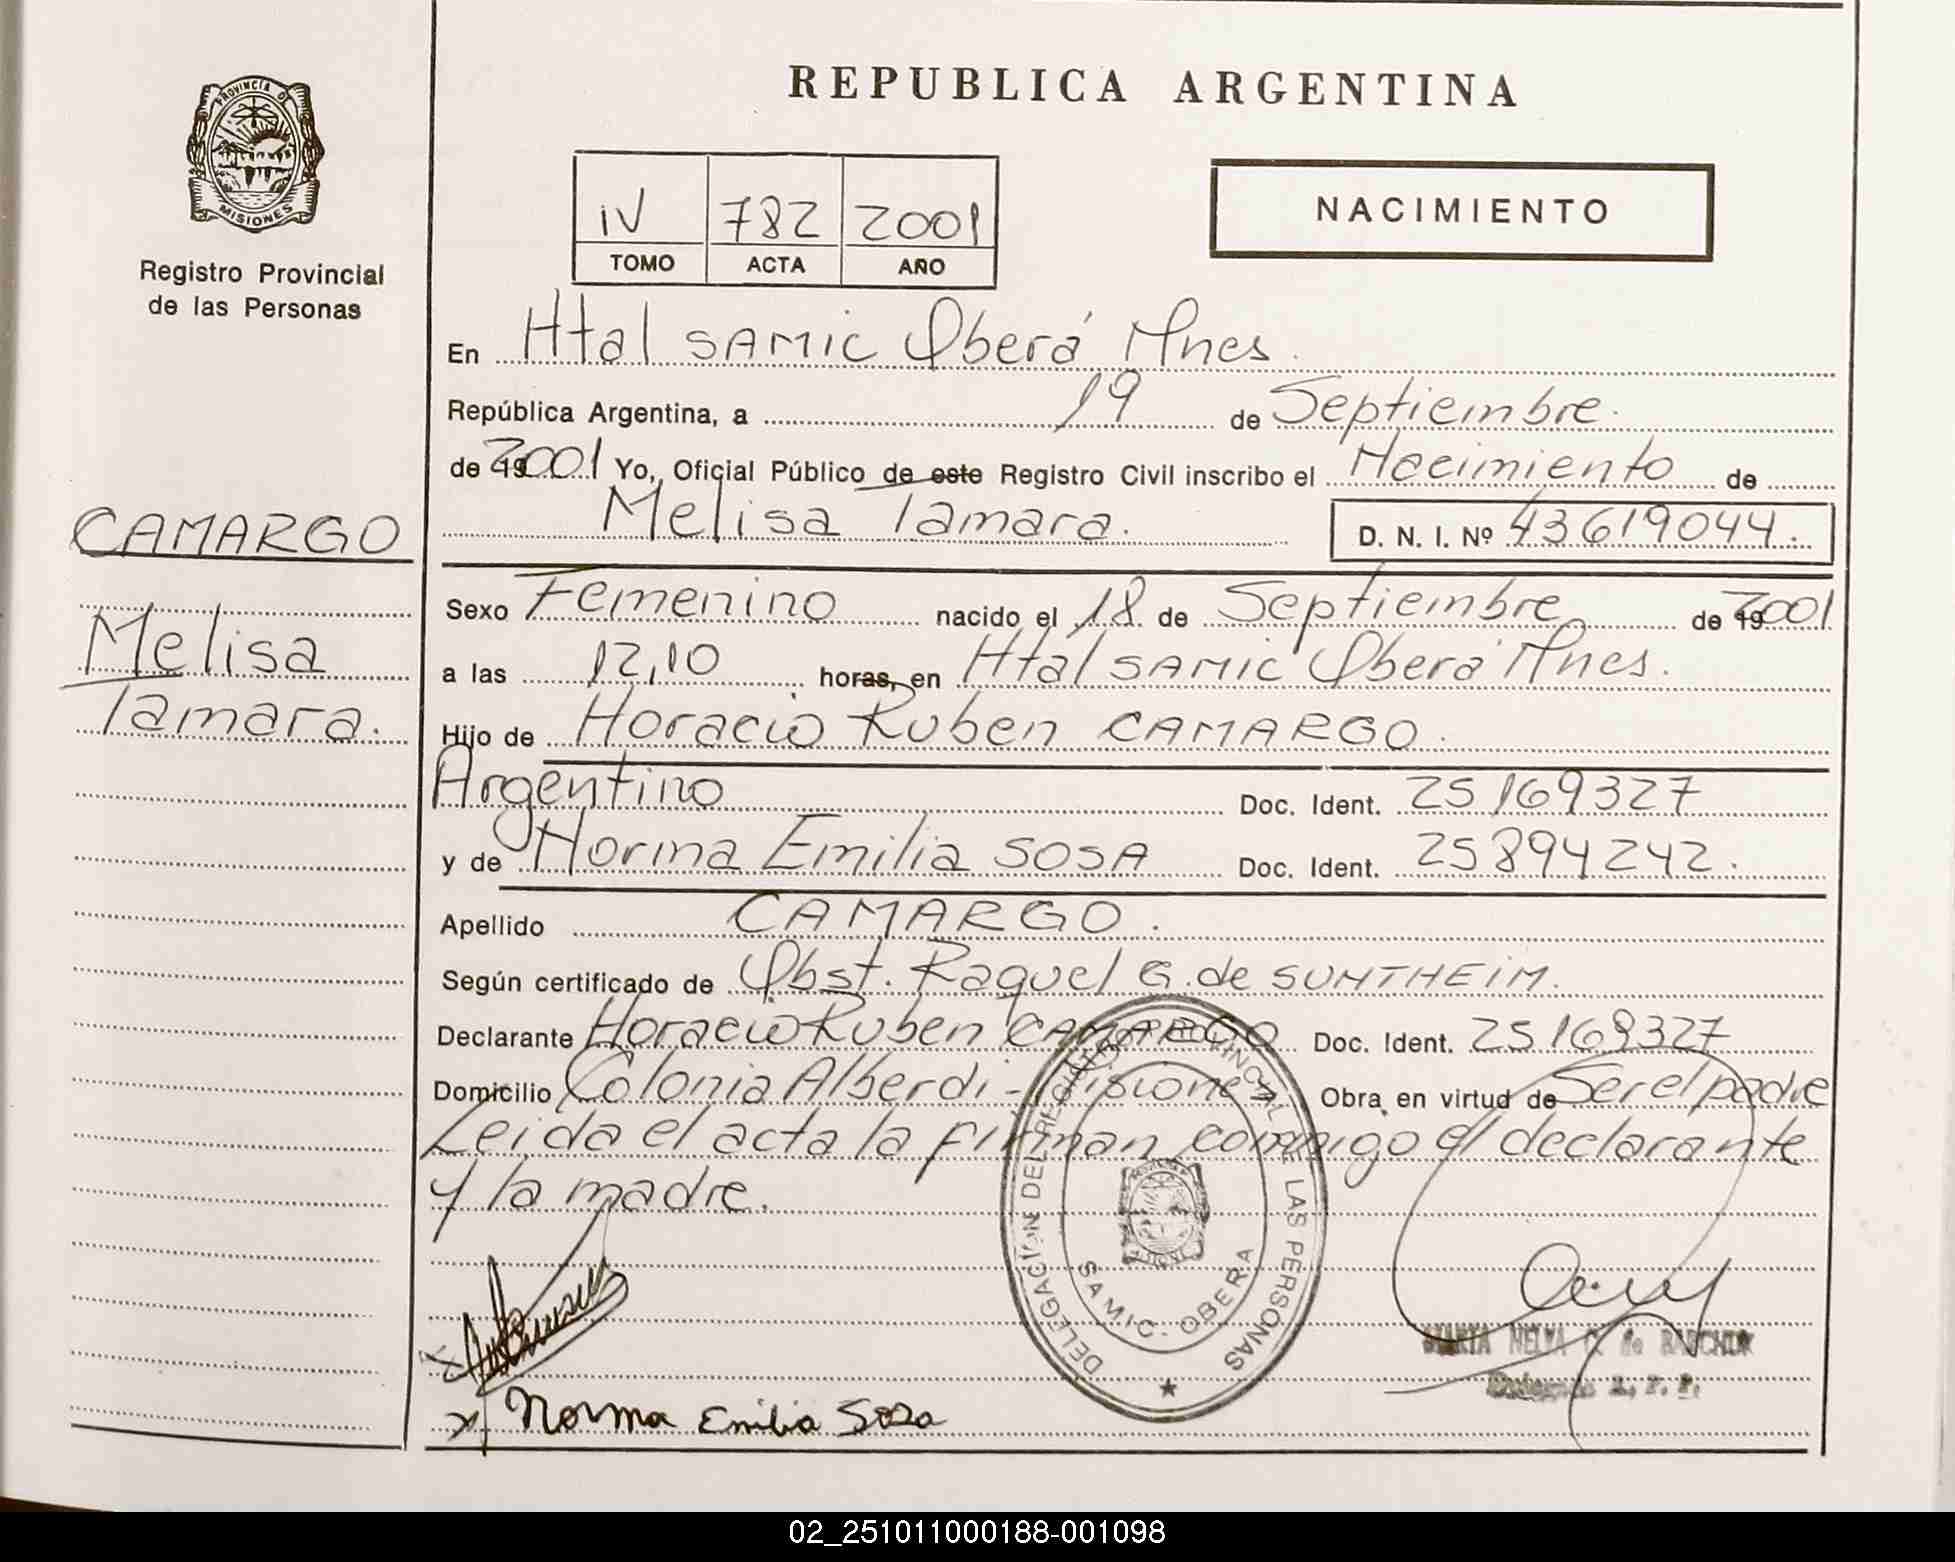 PROVINCIA DE
MISIONES
Registro Provincial
de las Personas
CAMARGO
Melisa
Tamara.
REPUBLICA ARGENTINA
IV 782 2001
TOMO ACTA AÑO
NACIMIENTO
En Htal SAMIC Oberá Mnes.
República Argentina, a 19 de Septiembre.
de 192001 Yo, Oficial Público de este Registro Civil inscribo el Nacimiento de
Melisa Tamara. D. N. I. Nº 43619044.
Sexo Femenino nacido el 18 de Septiembre de 192001
a las 12,10 horas, en Htal SAMIC Oberá Mnes.
Hijo de Horacio Ruben CAMARGO.
Argentino Doc. Ident. 25169327
y de Norma Emilia SOSA Doc. Ident. 25894242.
Apellido CAMARGO.
Según certificado de Obst. Raquel G. de SUNTHEIM.
Declarante Horacio Ruben CAMARGO Doc. Ident. 25169327
Domicilio Colonia Alberdi - Misiones Obra en virtud de Ser el padre
Leida el acta la firman conmigo el declarante
y la madre.
DELEGACION DEL REGISTRO PROVINCIAL DE LAS PERSONAS
SAMIC - OBERA
MARTA NELYA C. de
Delegada R. P. P.
x
x Norma Emilia Sosa
02_251011000188-001098